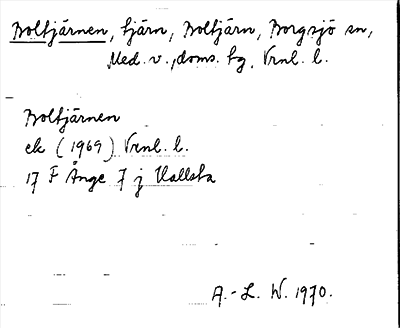 Boltjärnen, tjärn, Boltjärn, Borgsjö sn,
Med. v., doms. hg, Vrnl. l.
Boltjärnen
ek (1969) Vrnl. l.
17 F Ånge 7 j Hallsta
A.-L. W. 1970.